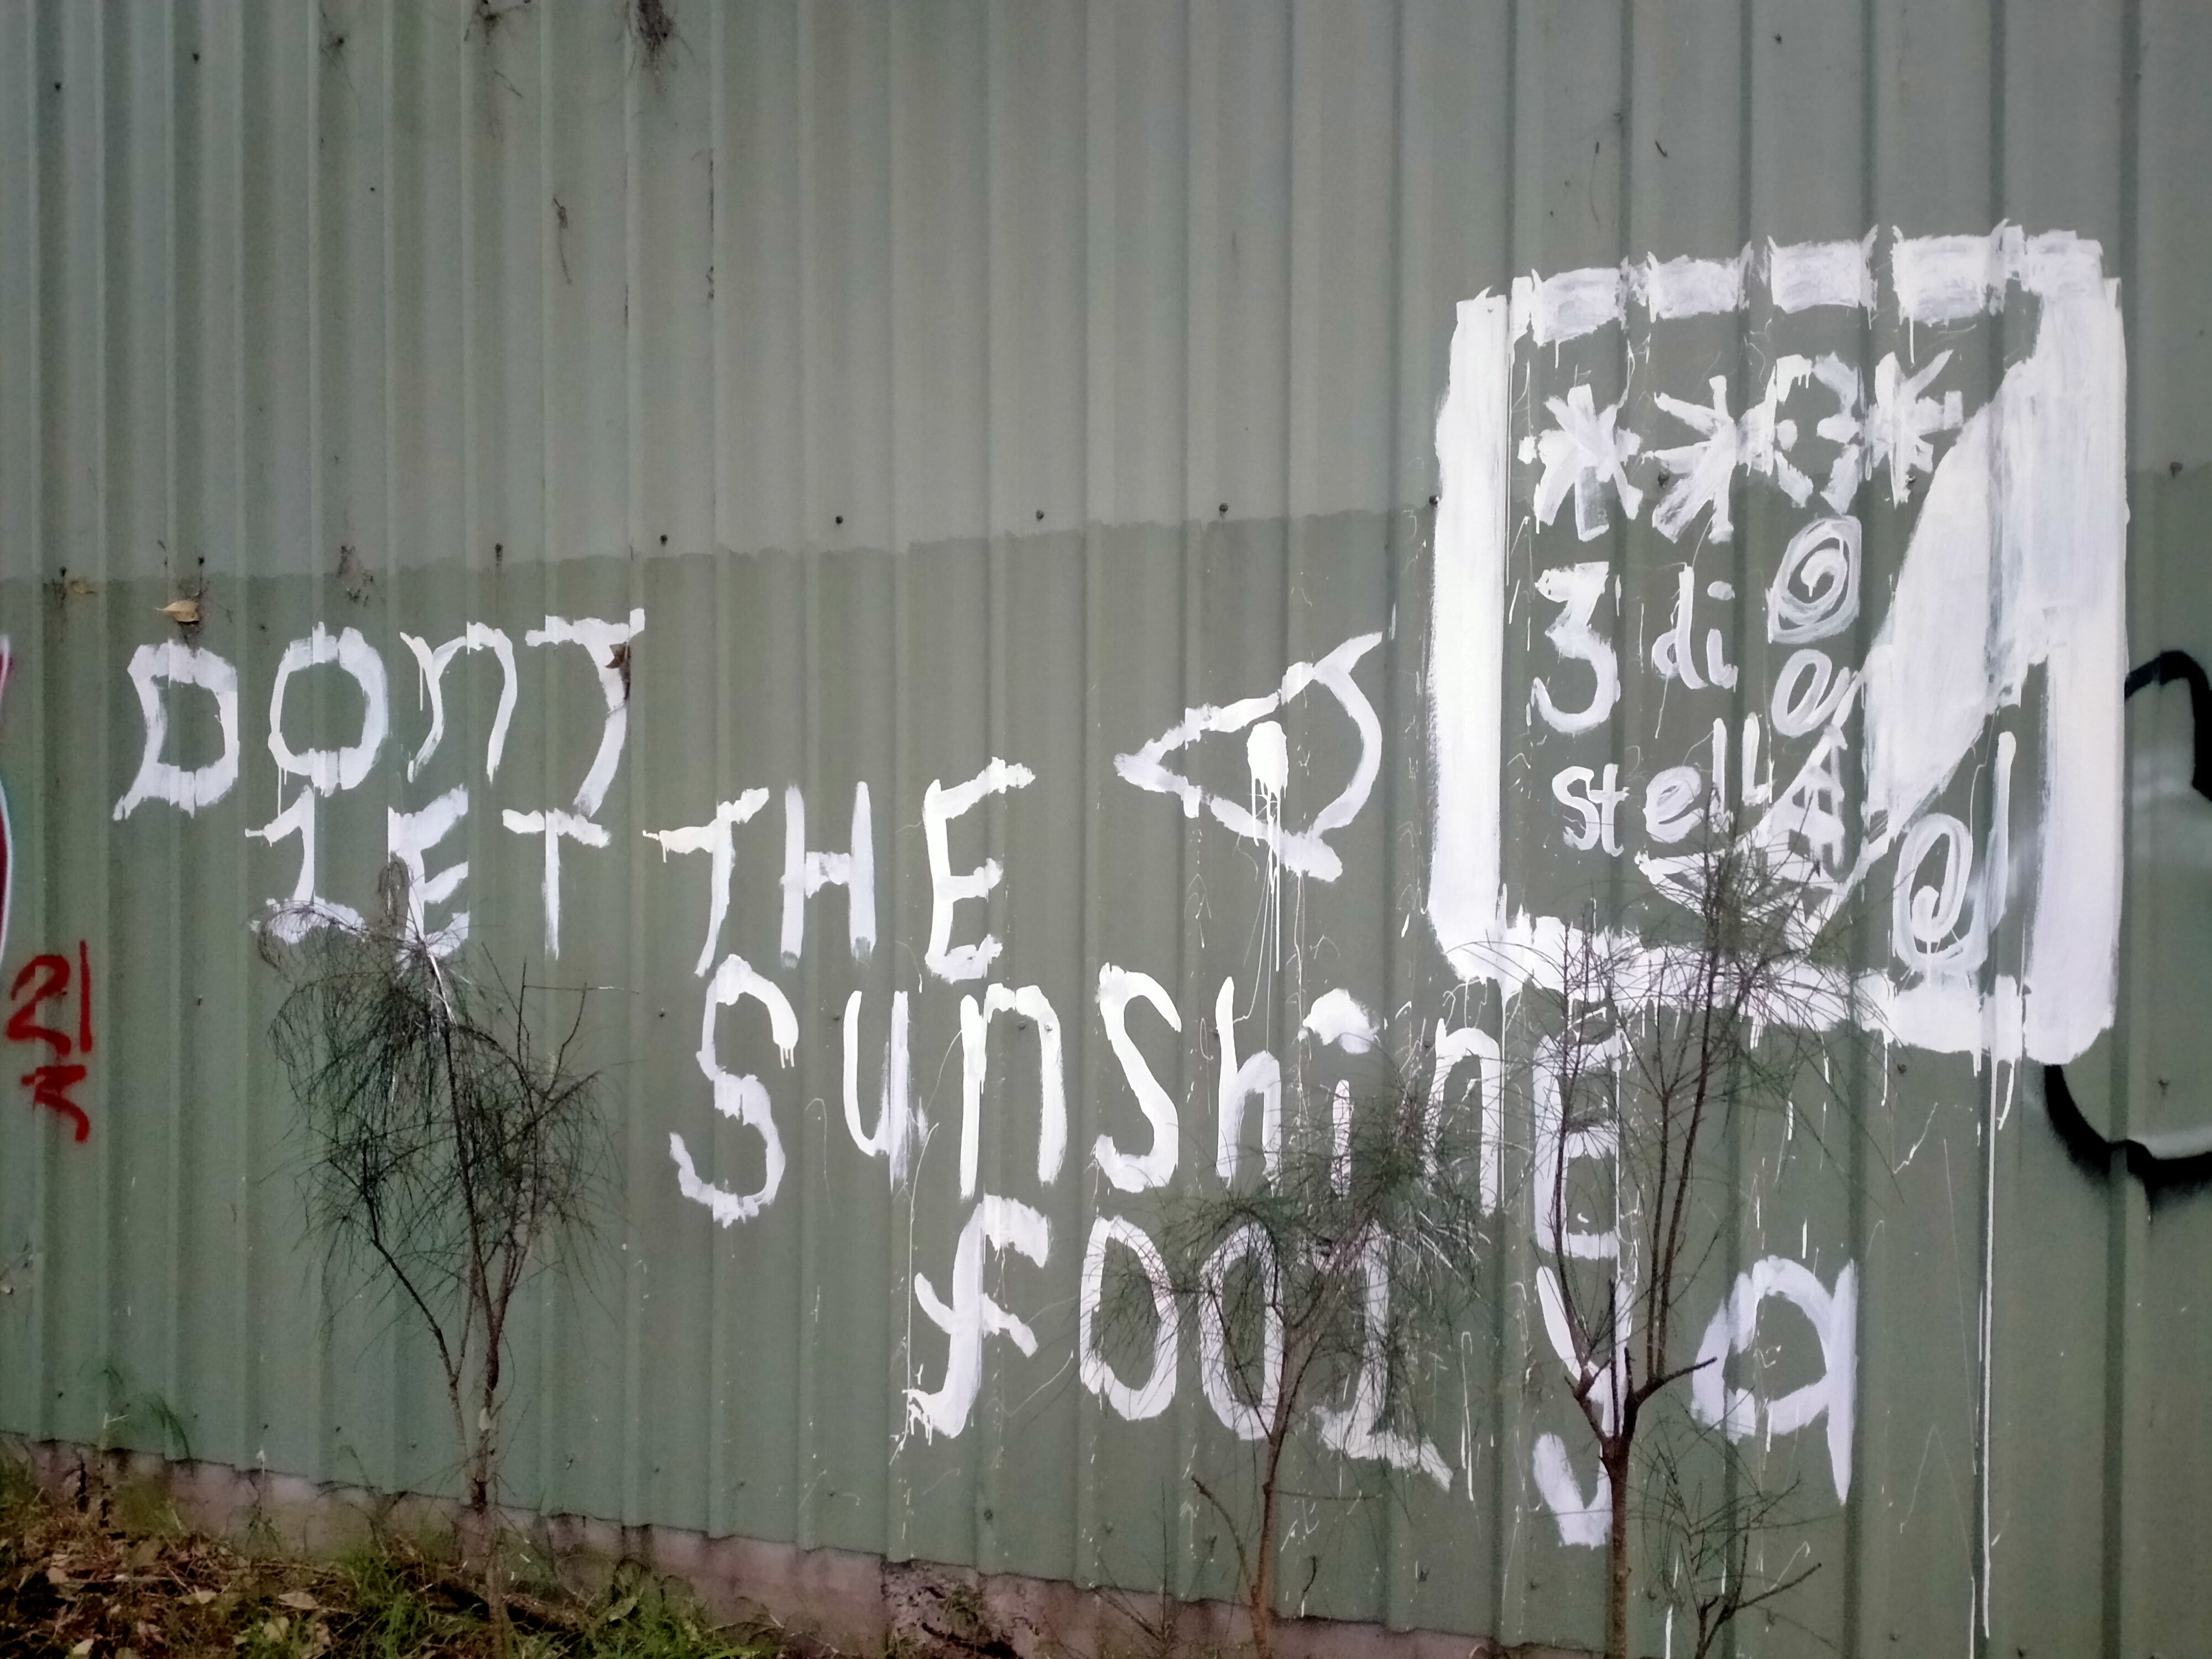 DONT
LET THE
Sunshine
fool ya
3 di
stella
21